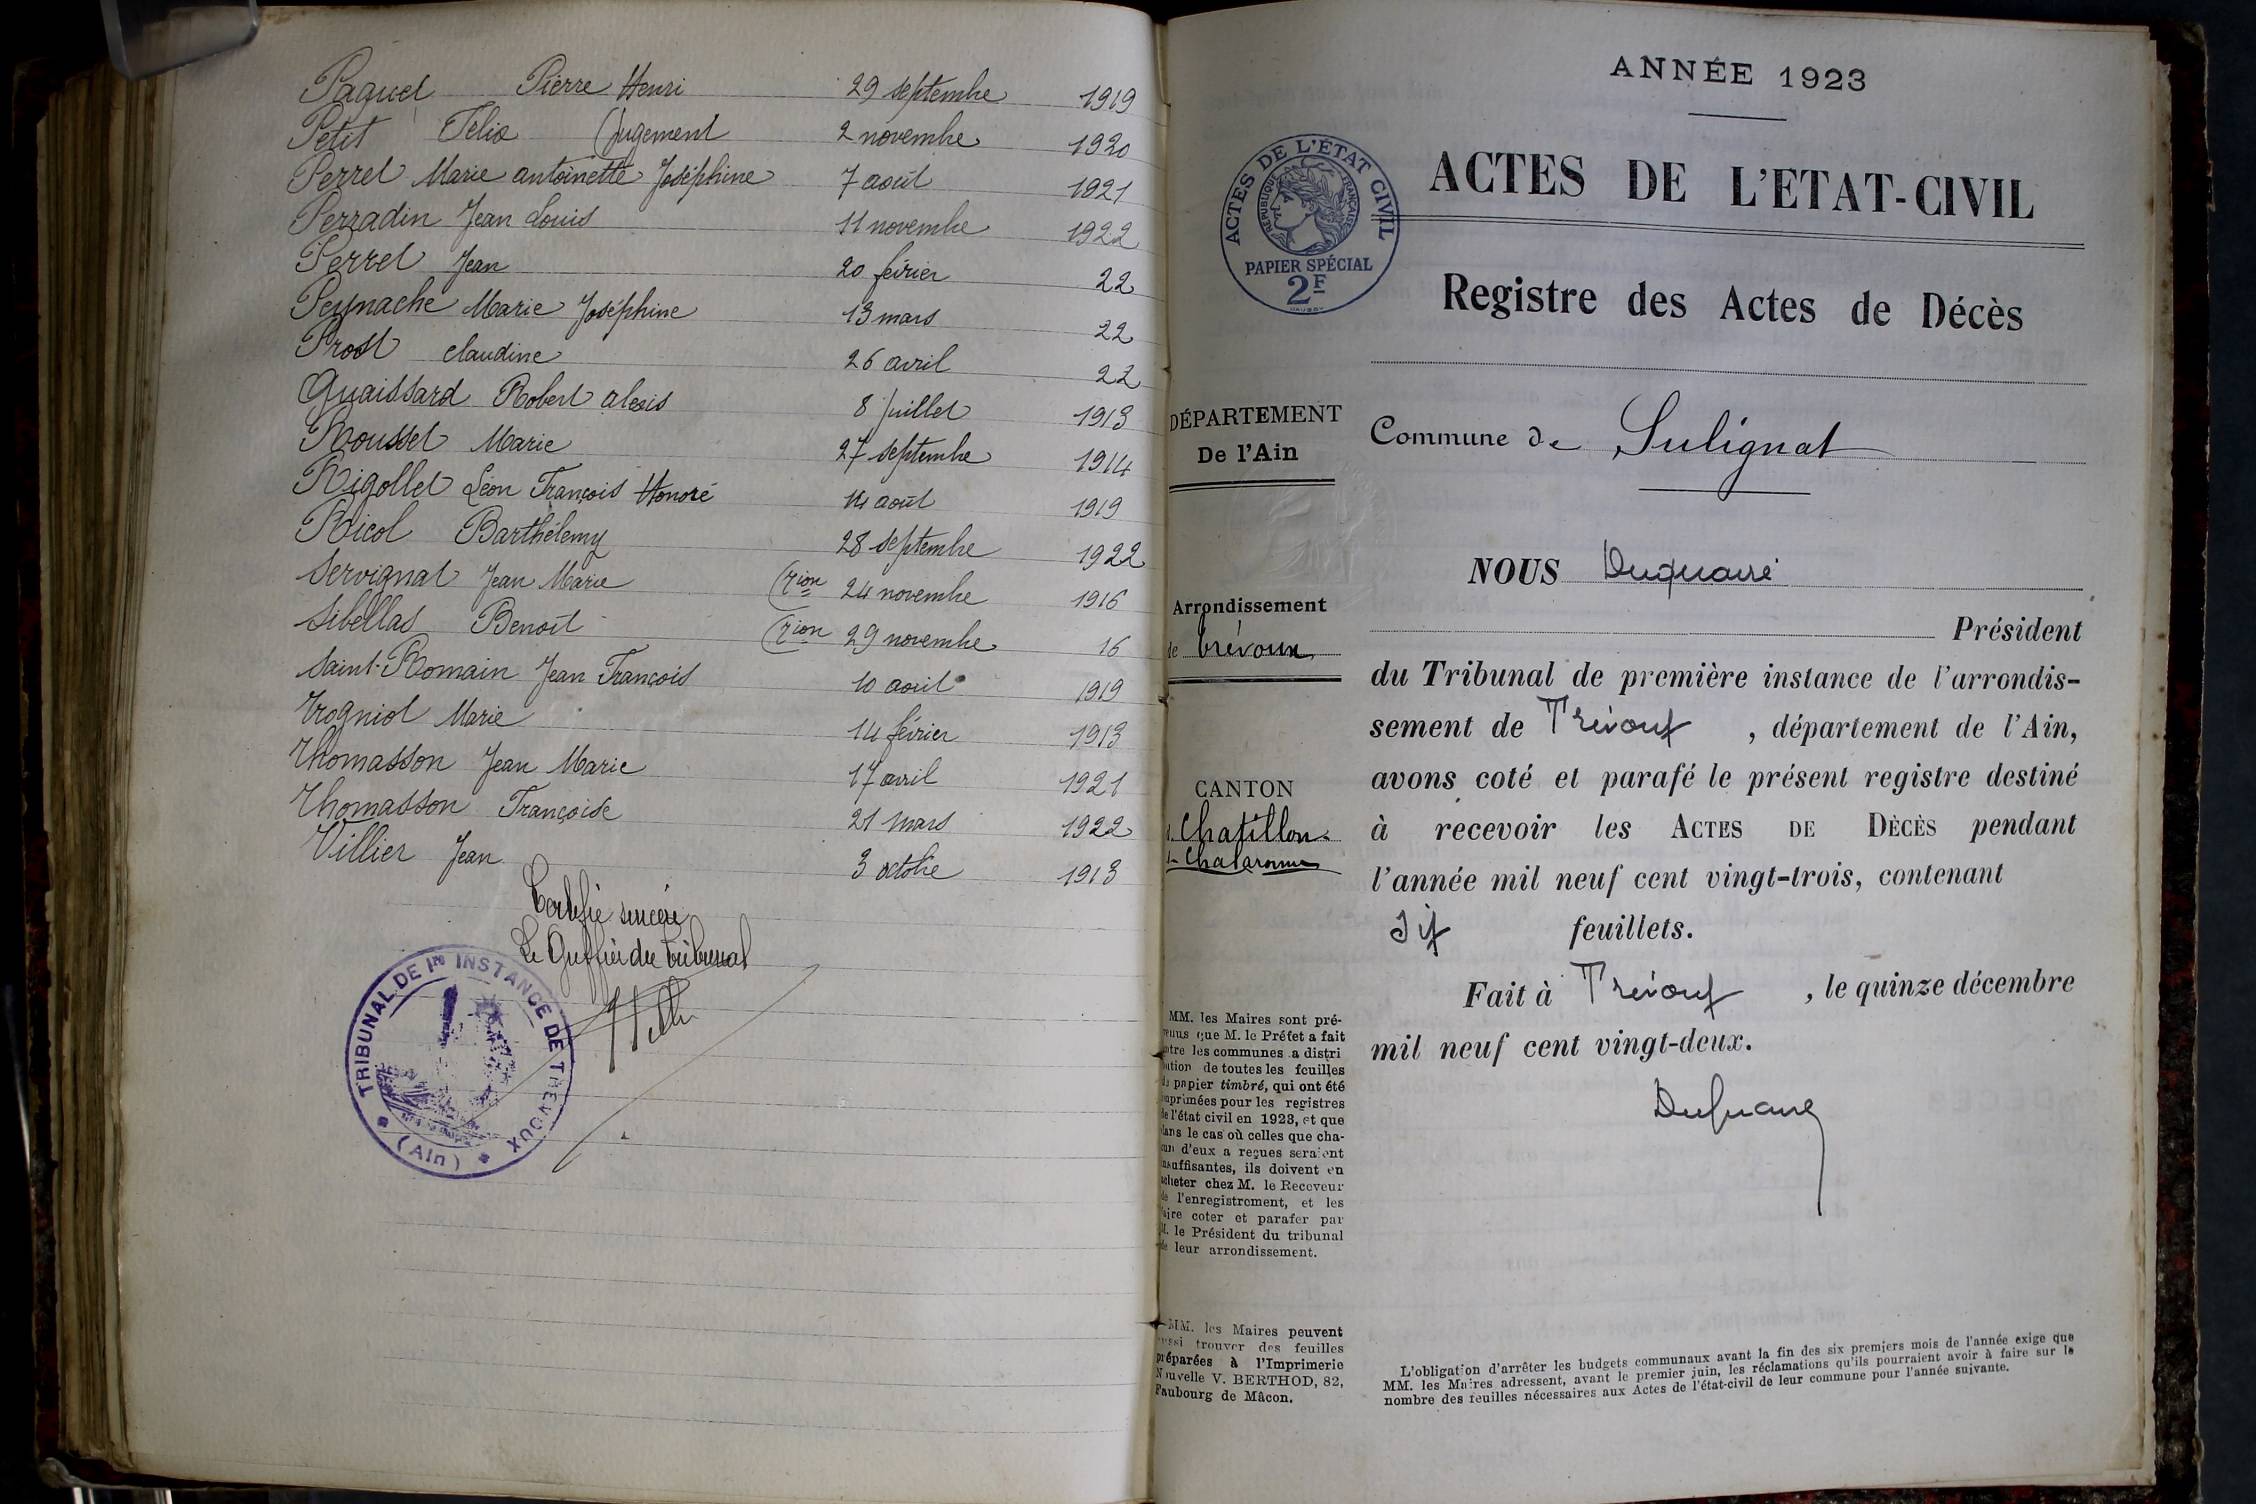 Paquet Pierre Henri 29 septembre 1919
Petit Félix (jugement 2 novembre 1920
Perret Marie antoinette Joséphine 7 août 1921
Perradin Jean Louis 11 novembre 1922
Perret Jean 20 février 22
Peynache Marie Joséphine 13 mars 22
Prost claudine 26 avril 22
Quaissard Robert alexis 8 juillet 1913
Rousset Marie 27 septembre 1914
Rigollet Léon François Honoré 14 août 1919
Ricol Barthélemy 28 septembre 1922
Servignat Jean Marie (Tion 24 novembre 1916
Sibellas Benoît (Tion 29 novembre 16
Saint-Romain Jean François 10 août 1919
Trogniot Marie 14 février 1913
Thomasson Jean Marie 17 avril 1921
Thomasson Françoise 21 mars 1922
Villier Jean 3 octobre 1913
Certifié sincère
Le Greffier du tribunal
TRIBUNAL DE 1re INSTANCE DE TREVOUX
(Ain)
ANNÉE 1923
ACTES DE L'ÉTAT CIVIL
RÉPUBLIQUE FRANÇAISE
PAPIER SPÉCIAL
2F
ACTES DE L'ETAT-CIVIL
Registre des Actes de Décès
DÉPARTEMENT
De l'Ain
Commune de Sulignat
NOUS Duquaire
Arrondissement
de trévoux
Président
du Tribunal de première instance de l'arrondis-
sement de Trévoux, département de l'Ain,
avons coté et parafé le présent registre destiné
à recevoir les ACTES DE DÉCÈS pendant
l'année mil neuf cent vingt-trois, contenant
six feuillets.
Fait à Trévoux, le quinze décembre
mil neuf cent vingt-deux.
Duquaire
CANTON
de Chatillon-
s-Chalaronne
MM. les Maires sont pré-
venus que M. le Préfet a fait
entre les communes la distri
bution de toutes les feuilles
de papier timbré, qui ont été
imprimées pour les registres
de l'état civil en 1923, et que
dans le cas où celles que cha-
cun d'eux a reçues seraient
insuffisantes, ils doivent en
acheter chez M. le Receveur
de l'enregistrement, et les
faire coter et parafer par
M. le Président du tribunal
de leur arrondissement.
MM. les Maires peuvent
aussi trouver des feuilles
préparées à l'Imprimerie
Nouvelle V. BERTHOD, 82,
Faubourg de Mâcon.
L'obligation d'arrêter les budgets communaux avant la fin des six premiers mois de l'année exige que
MM. les Maires adressent, avant le premier juin, les réclamations qu'ils pourraient avoir à faire sur le
nombre des feuilles nécessaires aux Actes de l'état-civil de leur commune pour l'année suivante.